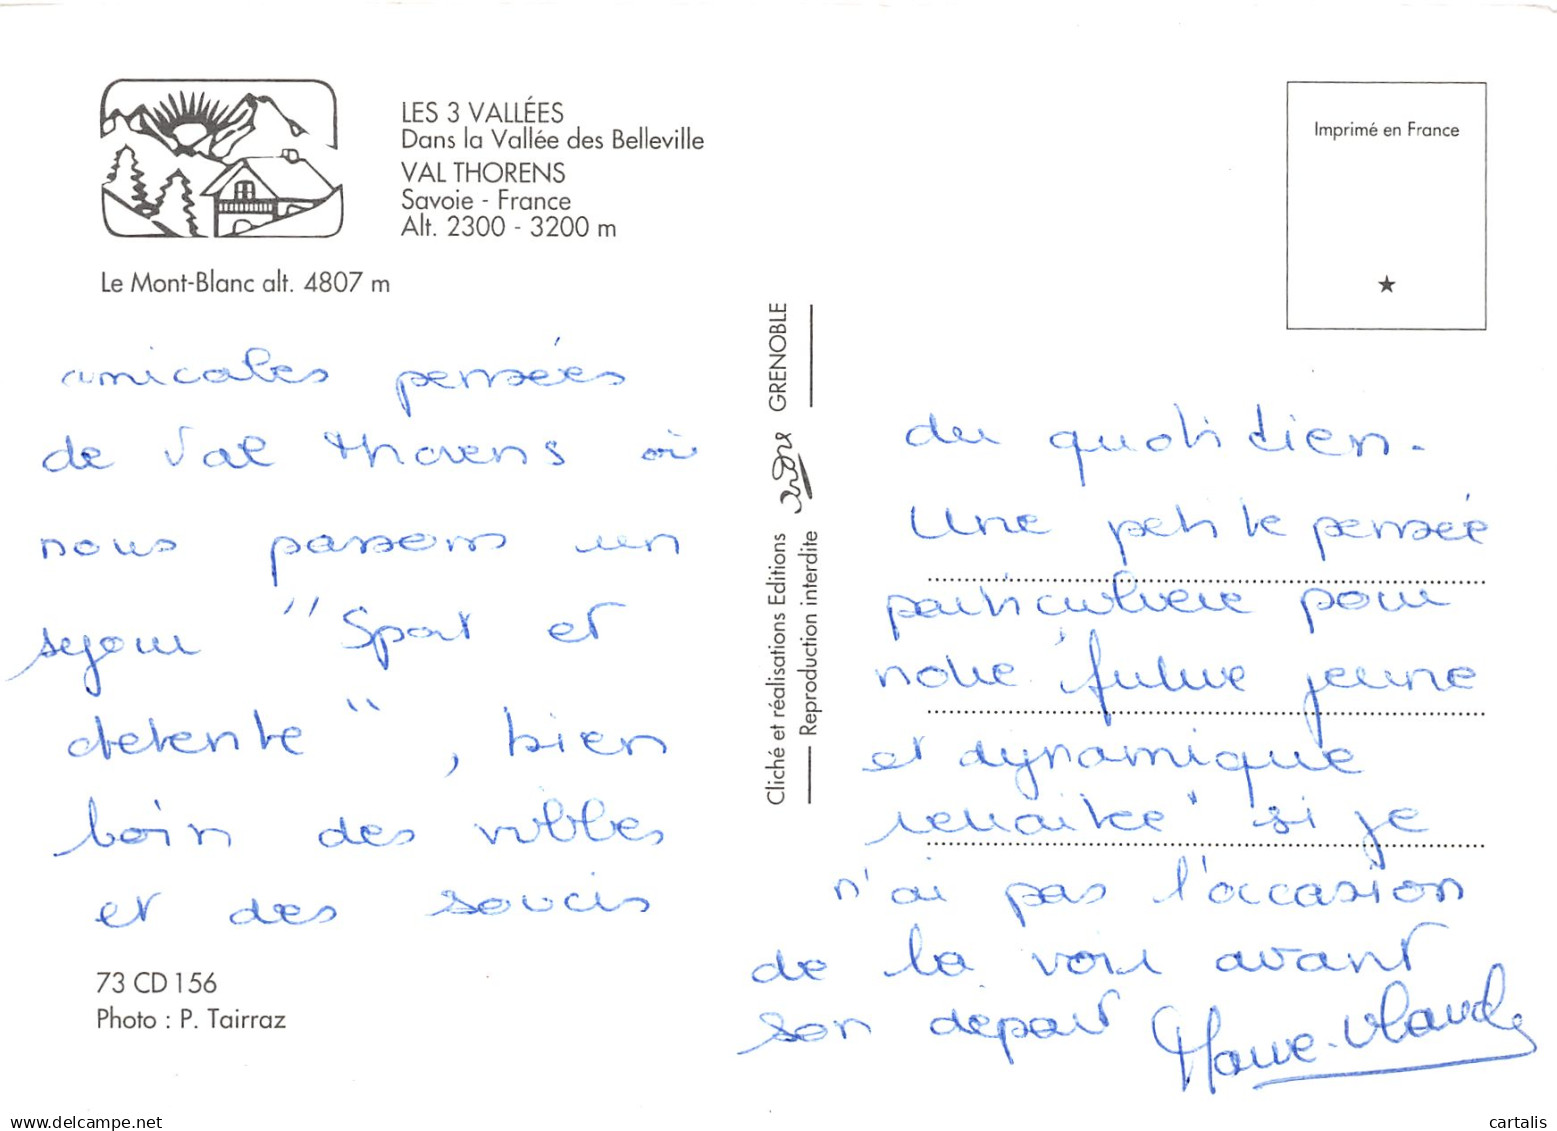 LES 3 VALLÉES
Dans la Vallée des Belleville
VAL THORENS
Savoie - France
Alt. 2300 - 3200 m
Le Mont-Blanc alt. 4807 m
Imprimé en France
amicales pensées
de Val Thorens où
nous passons un
sejour "Sport et
detente", bien
loin des villes
et des soucis
73 CD 156
Photo : P. Tairraz
Cliché et réalisations Editions
GRENOBLE
Reproduction interdite
du quotidien.
Une petite pensée
particulière pour
notre "future jeune
et dynamique
retraitée" si je
n'ai pas l'occasion
de la voir avant
son départ
Marie-Claude
delcampe.net
cartalis